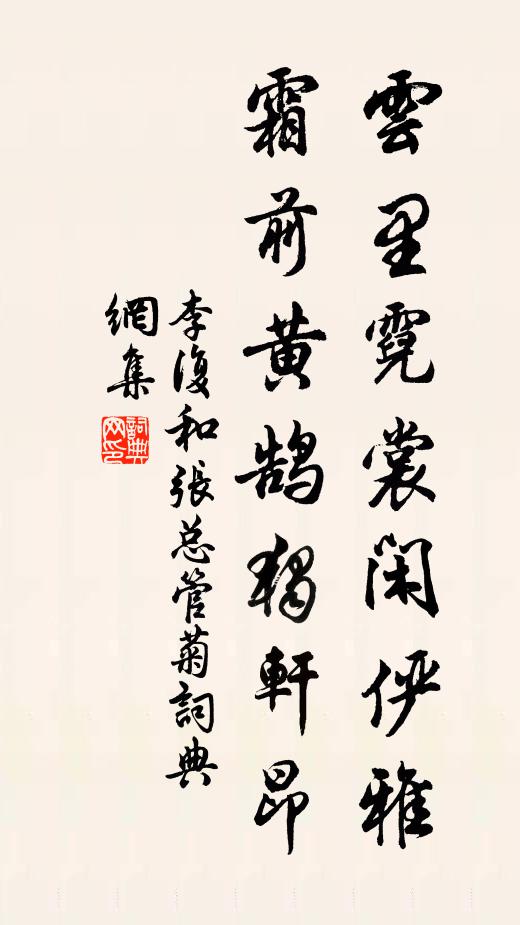 雲里霓裳閑俨雅
霜前黄鹄獨軒昂
李復和張总管菊詞典
網集
詞典
网印